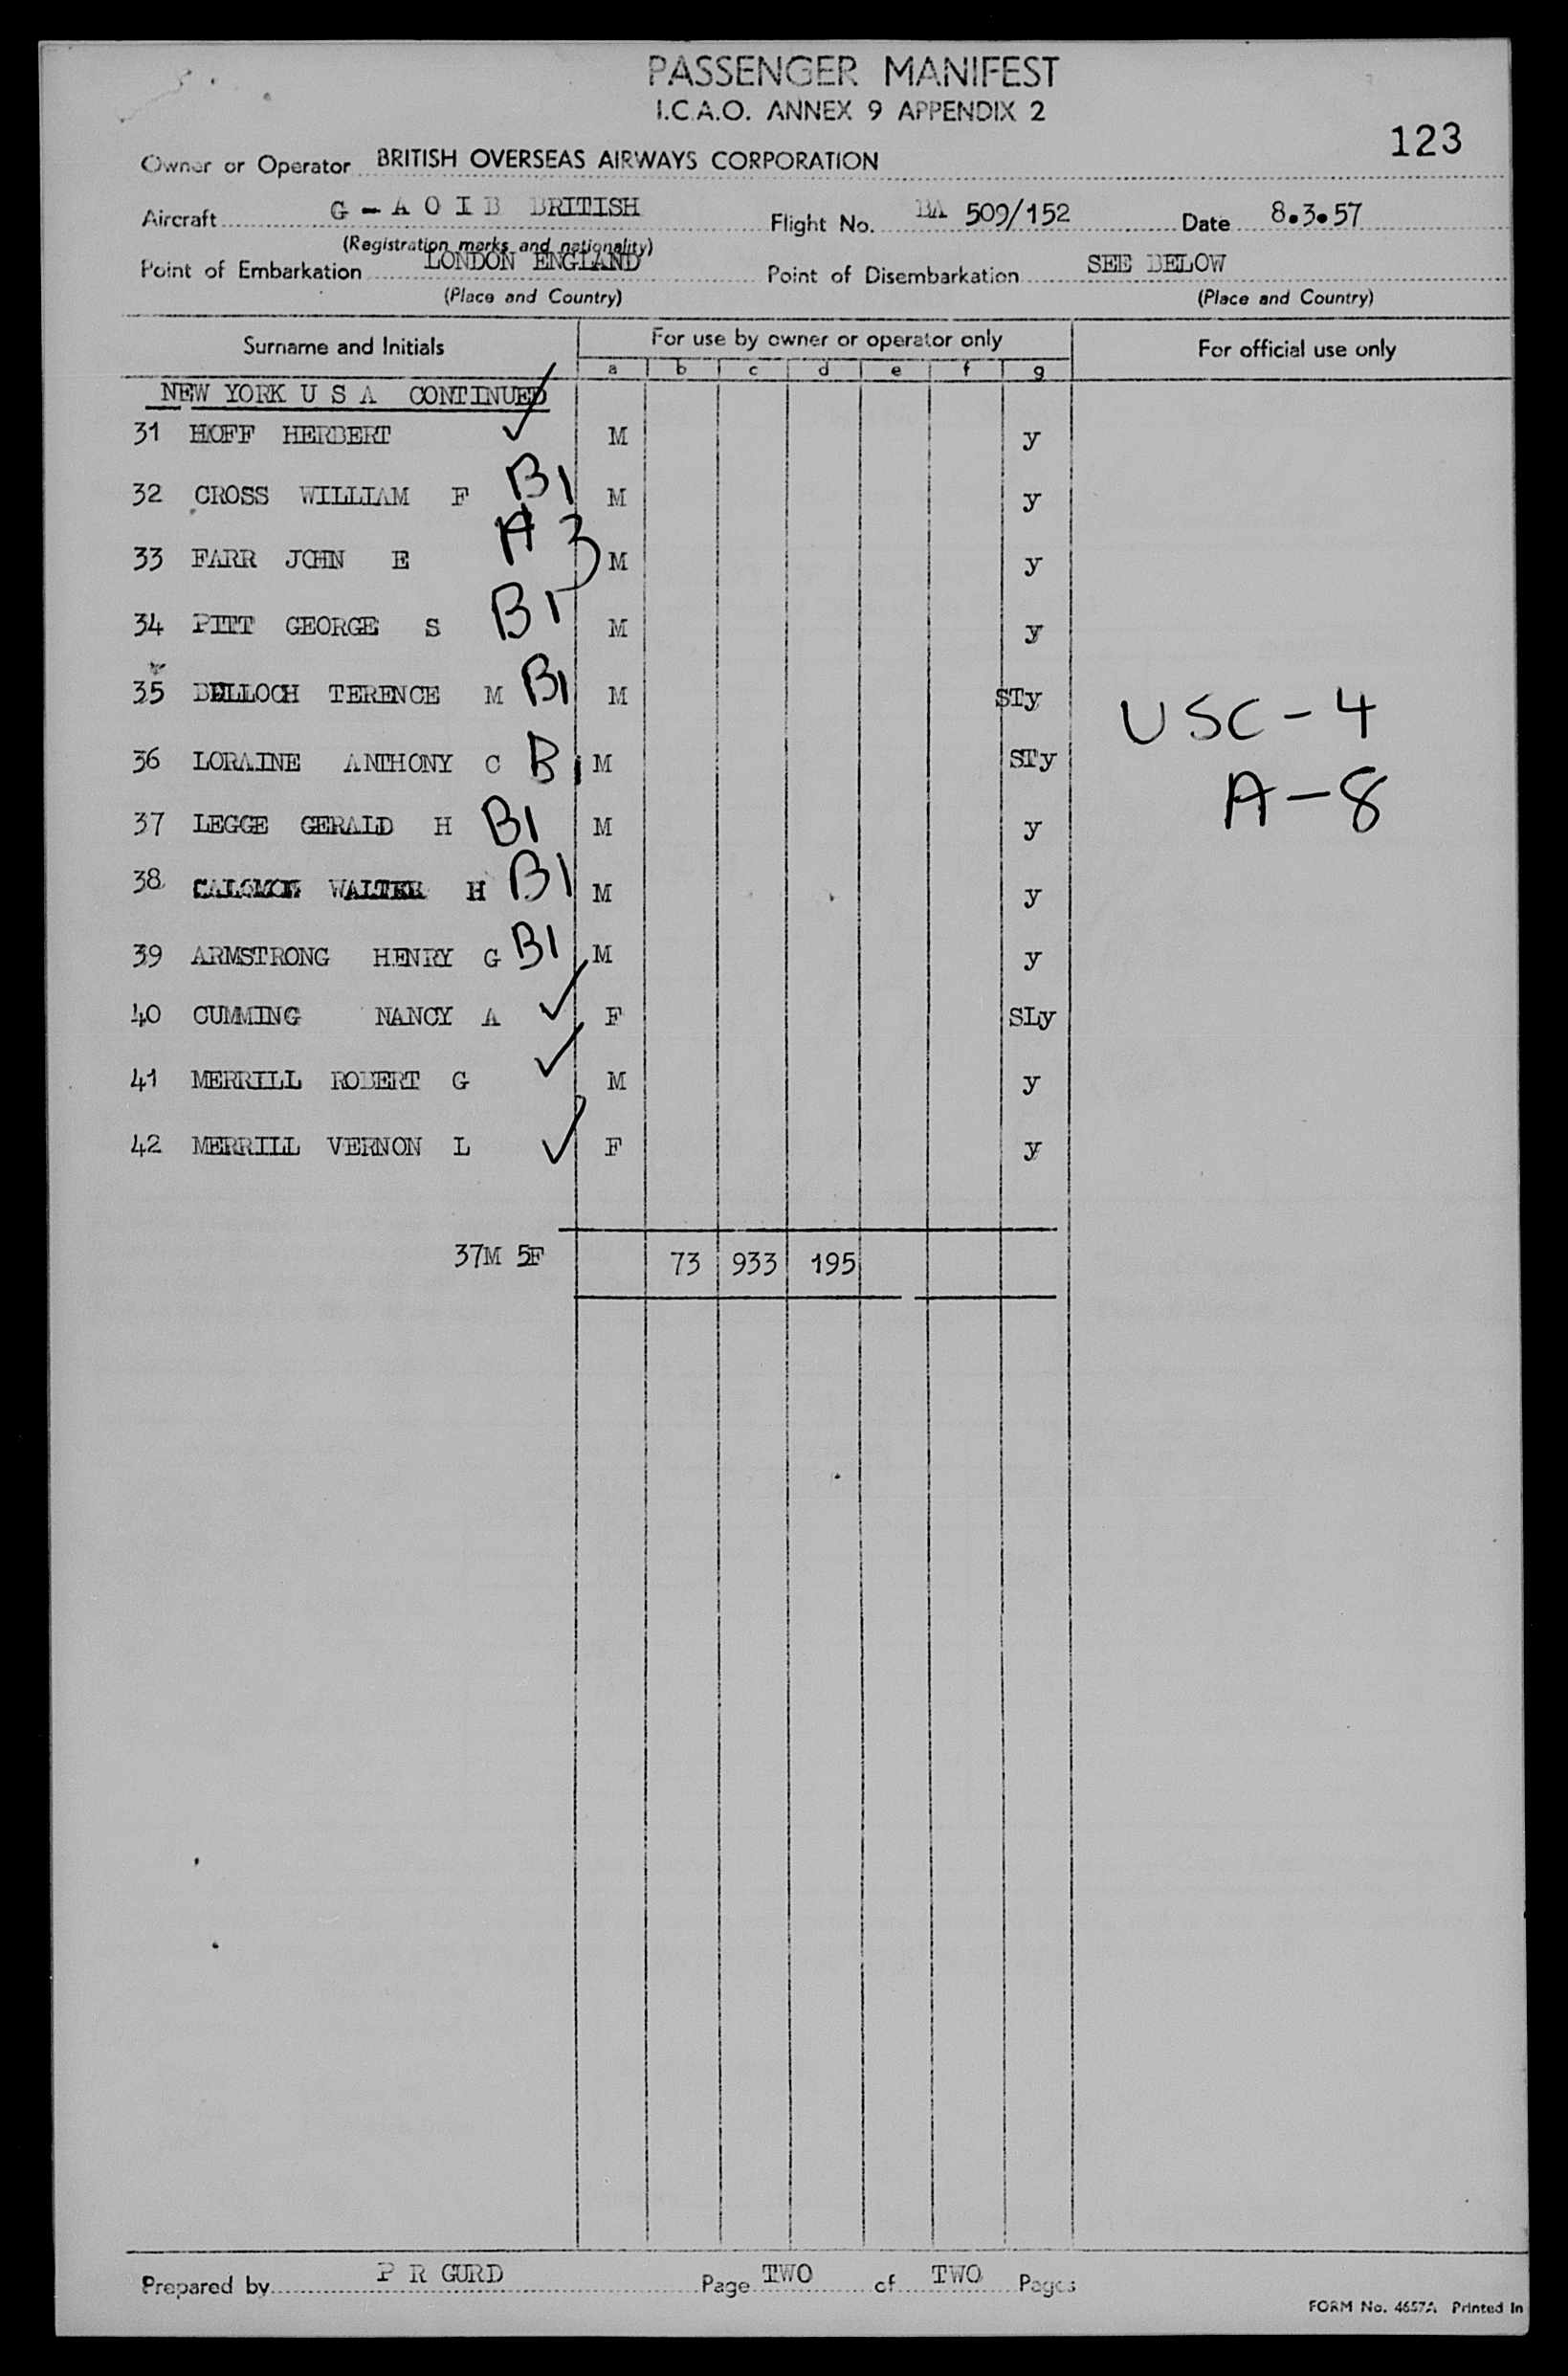 PASSENGER MANIFEST
I.C.A.O. ANNEX 9 APPENDIX 2
123
Owner or Operator BRITISH OVERSEAS AIRWAYS CORPORATION
Aircraft G - A O I B BRITISH Flight No. BA 509/152 Date 8.3.57
(Registration marks and nationality)
Point of Embarkation LONDON ENGLAND Point of Disembarkation SEE BELOW
(Place and Country) (Place and Country)
Surname and Initials For use by owner or operator only For official use only
a b c d e f g
NEW YORK U S A CONTINUED
31 HOFF HERBERT ✓ M y
32 CROSS WILLIAM F B1 M y
33 FARR JOHN E A 3 M y
34 PITT GEORGE S B1 M y
35 BELLOCH TERENCE M B1 M STy
USC - 4
36 LORAINE ANTHONY C B1 M STy
A - 8
37 LEGGE GERALD H B1 M y
38 WALTER H B1 M y
39 ARMSTRONG HENRY G B1 M y
40 CUMMING NANCY A ✓ F SLy
41 MERRILL ROBERT G ✓ M y
42 MERRILL VERNON L ✓ F y
37M 5F 73 933 195
Prepared by P R GURD Page TWO of TWO Pages
FORM No. 4657A Printed In